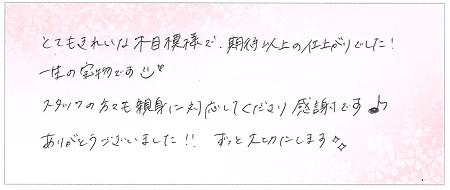 とてもきれいな木目模様で、期待以上の仕上がりでした!
一生の宝物です
スタッフの方々も親身に対応してくださり感謝です♪
ありがとうございました!! ずっと大切にします